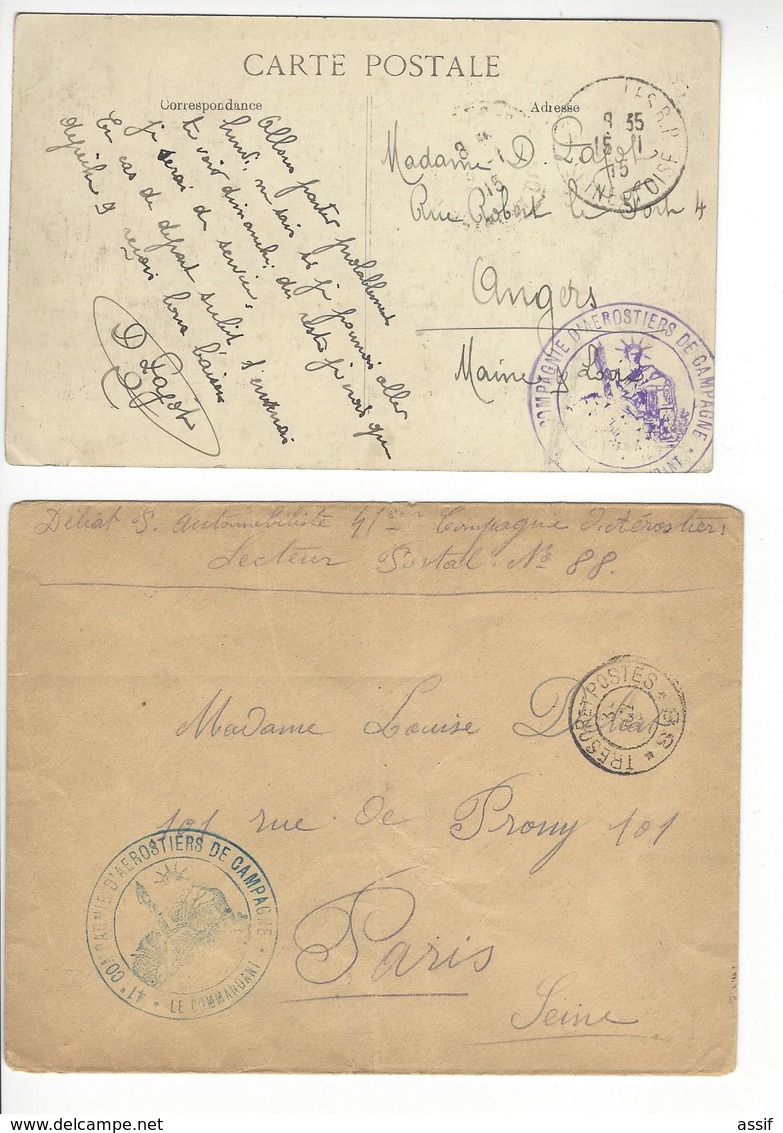 CARTE POSTALE
Correspondance
Adresse
Allons partir probablement
lundi, ne sais si je pourrai aller
te voir dimanche, du reste je crois que
je serai de service,
En cas de départ subit t'enverrai
dépêche
reçois bons baisers
D Pajot
Madame D. Pajot
Rue Robert le Fort 4
Angers
Maine & Loire
8 35
15 11
15
OISE
COMPAGNIE D'AEROSTIERS DE CAMPAGNE
Débat S. automobiliste 41ème Compagnie d'Aérostiers
Secteur Postal. No 88.
TRESOR ET POSTES * 88 *
Madame Louise Débat
101 rue de Prony 101
Paris
Seine
41e COMPAGNIE D'AEROSTIERS DE CAMPAGNE
* LE COMMANDANT *
delcampe.net
assif